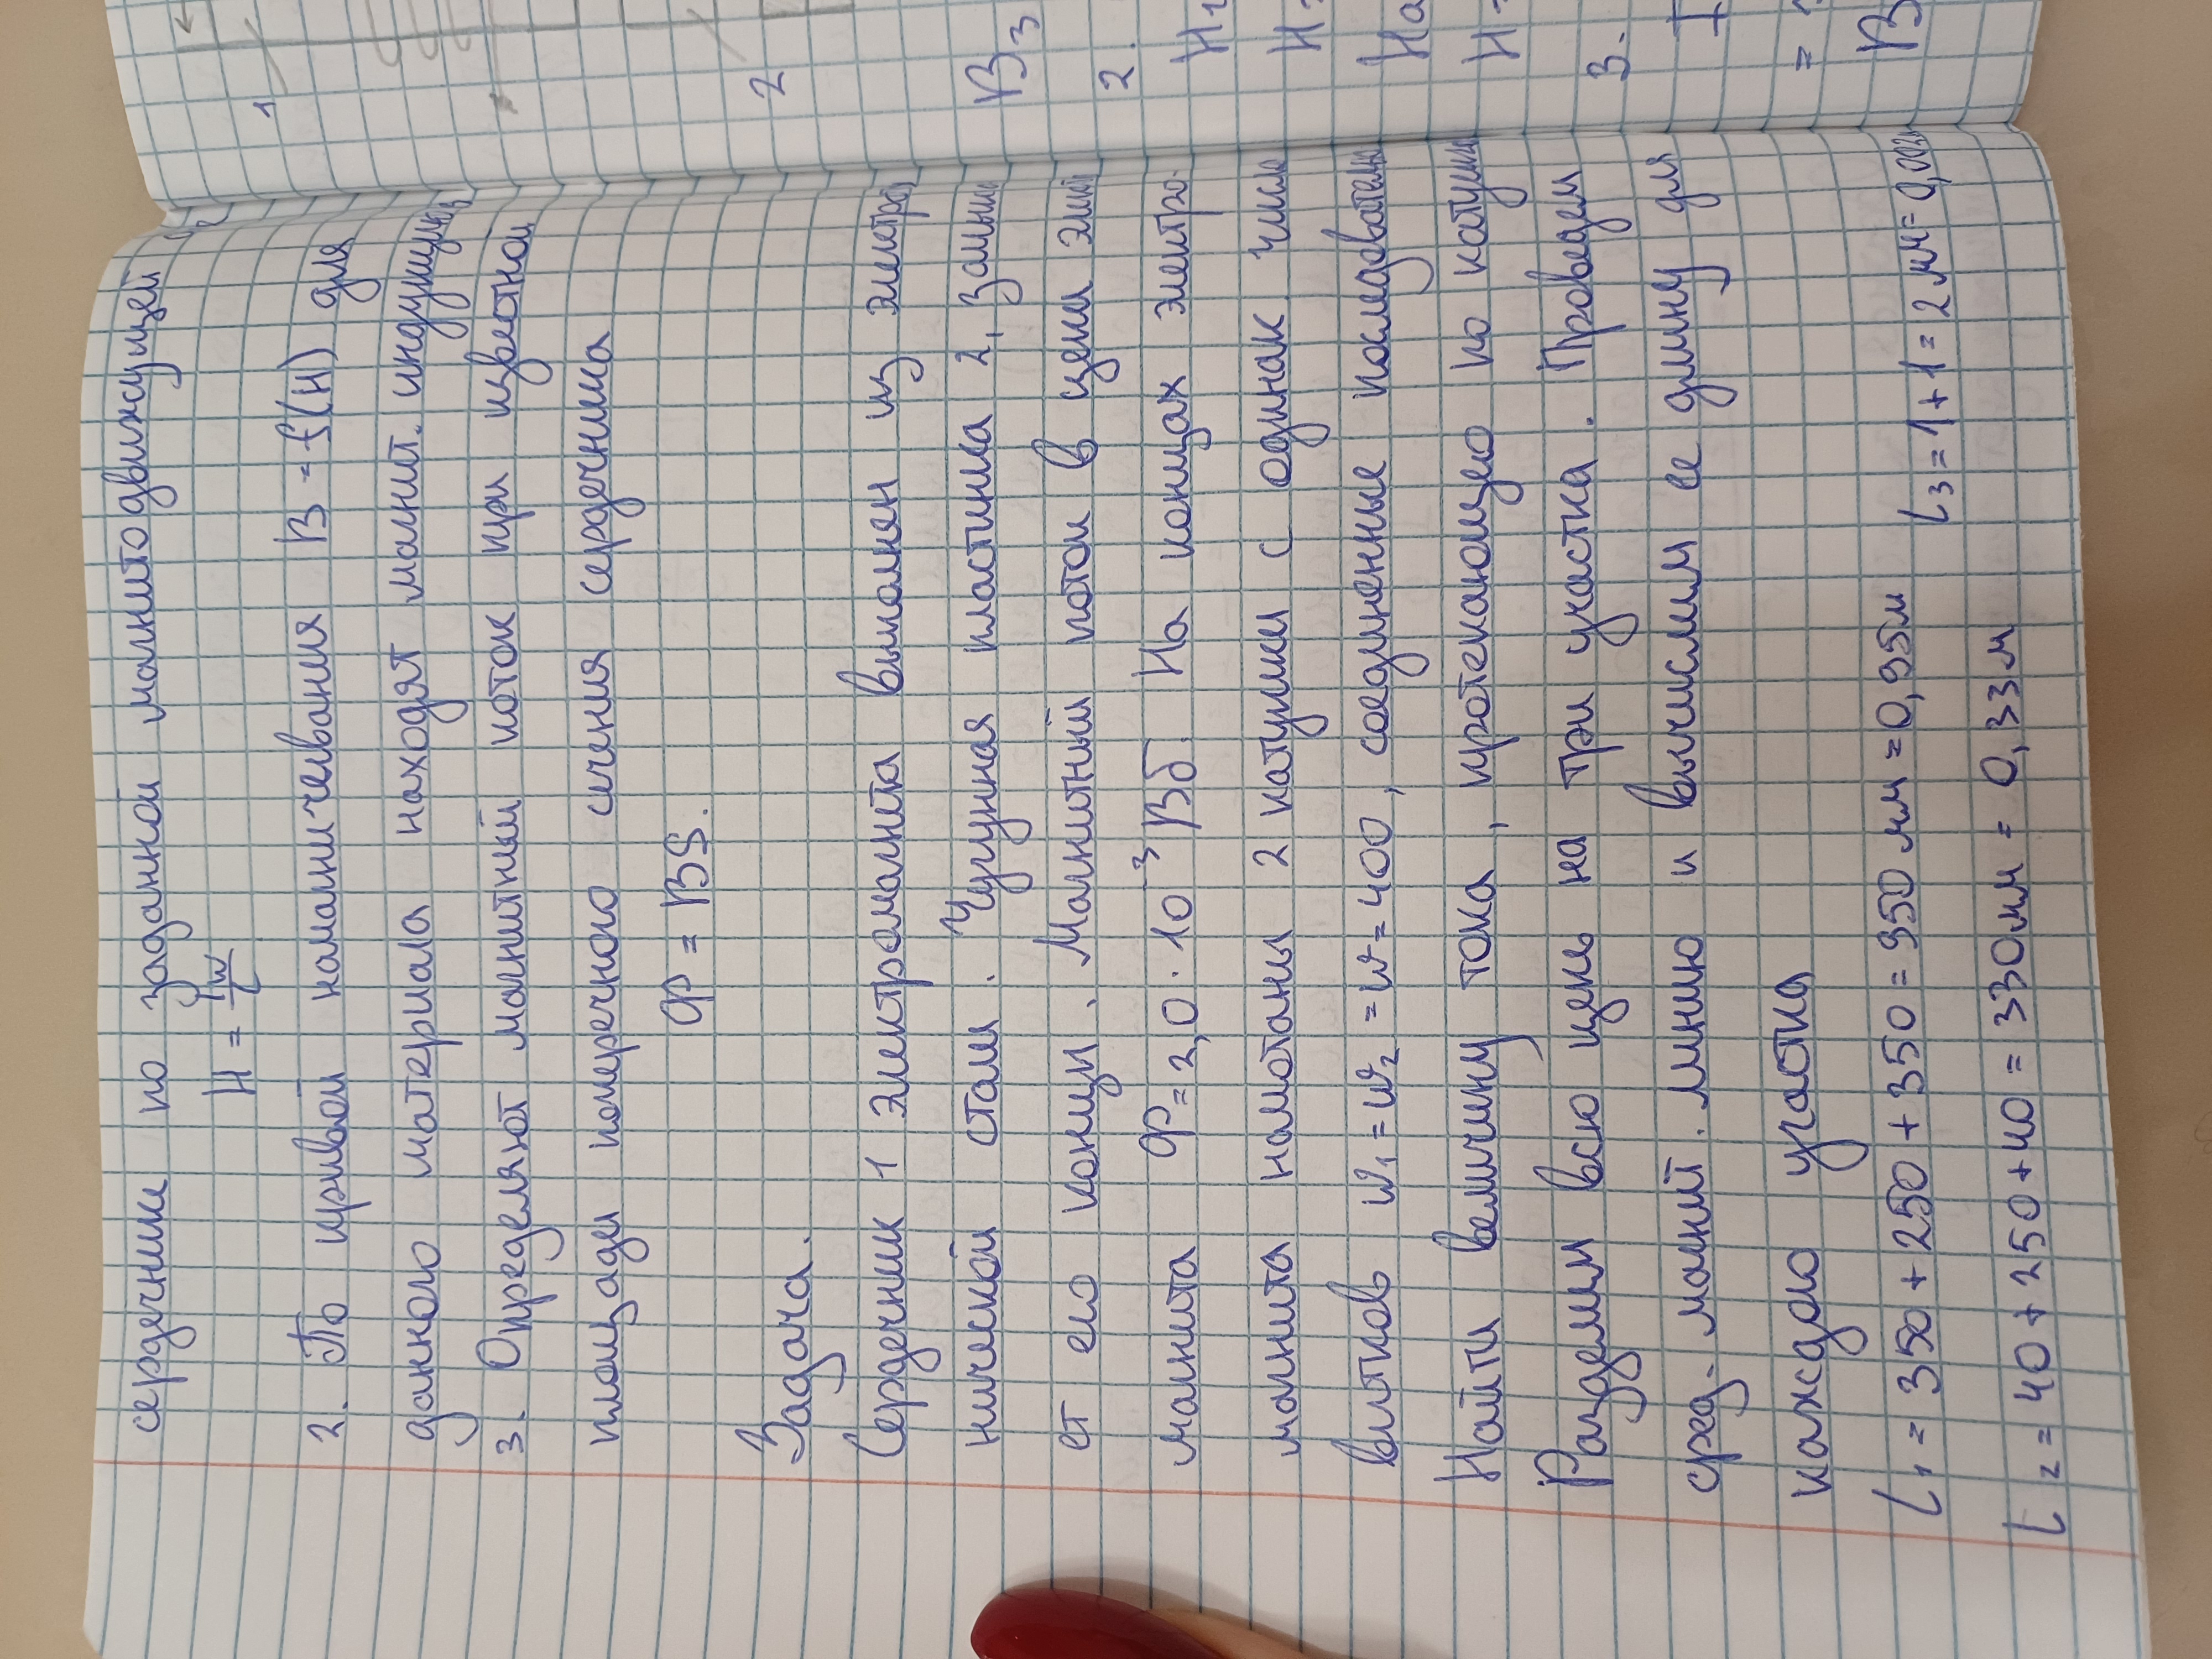 сердечнике по заданной магнитодвижущей
H = Iw/L
2. По кривой намагничевания B = f(H) для
данного материала находят магнит. индукцию
3. Определяют магнитный поток при извесной
площади поперечного сечения сердечника
Ф = BS.
Задача.
Сердечник 1 электромагнита выполнен из электро
нической стали. Чугунная пластинка 2, замыка
ет его концы. Магнитный поток в цепи элект
магнита Ф = 2,0 · 10⁻³ Вб. На концах электро.
магнита намотаны 2 катушки с одинак. число
витков w₁ = w₂ = w = 400, соединенные последовательно
Найти величину тока, протекающего по катушк
Разделим всю цепь на три участка. Проведем
сред. магнит. линию и вычислим ее длину для
каждого участка
L₁ = 350 + 250 + 350 = 950 мм = 0,95м
L₃ = 1 + 1 = 2 мм = 0,002
L₂ = 40 + 250 + 40 = 330 мм = 0,33 м
1
2
B₃
2.
H₁
H
На
H
3.
=
B